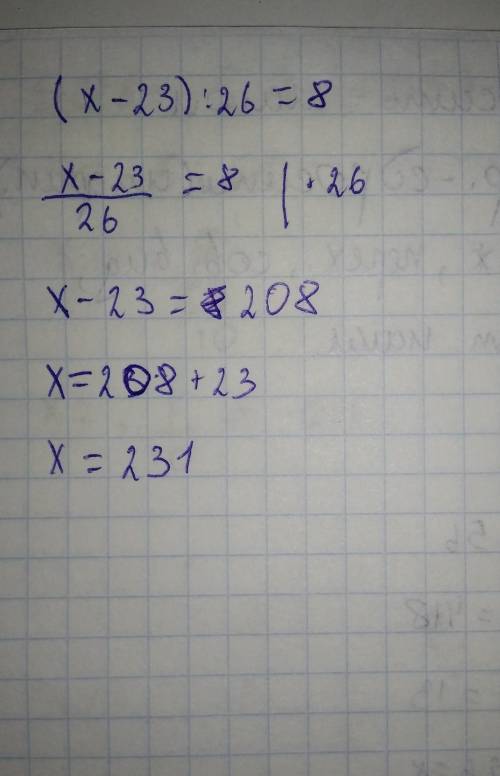 (x-23):26=8
x-23 / 26 = 8 | · 26
x-23=208
x=208+23
x=231